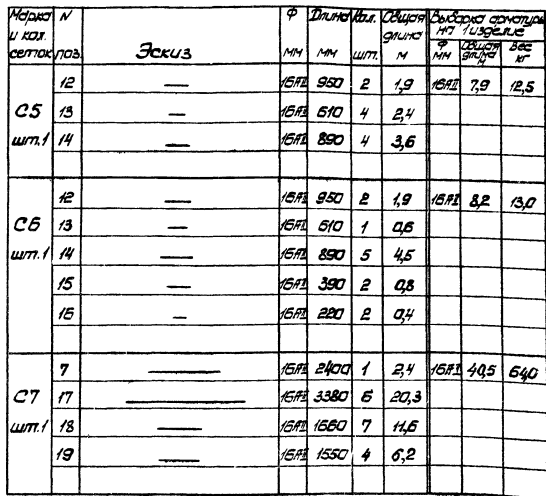 Марка и кол. сеток N поз. Эскиз Ф мм Длина мм Кол. шт. Общая длина м Выборка арматуры на 1 изделие
Ф мм Общая длина м Вес кг
12 16АII 950 2 1,9 16АII 7,9 12,5
С5 13 16АII 610 4 2,4
шт.1 14 16АII 890 4 3,6
12 16АII 950 2 1,9 16АII 8,2 13,0
С6 13 16АII 610 1 0,6
шт.1 14 16АII 890 5 4,5
15 16АII 390 2 0,8
16 16АII 220 2 0,4
7 16АII 2400 1 2,4 16АII 40,5 64,0
С7 17 16АII 3380 6 20,3
шт.1 18 16АII 1660 7 11,6
19 16АII 1550 4 6,2